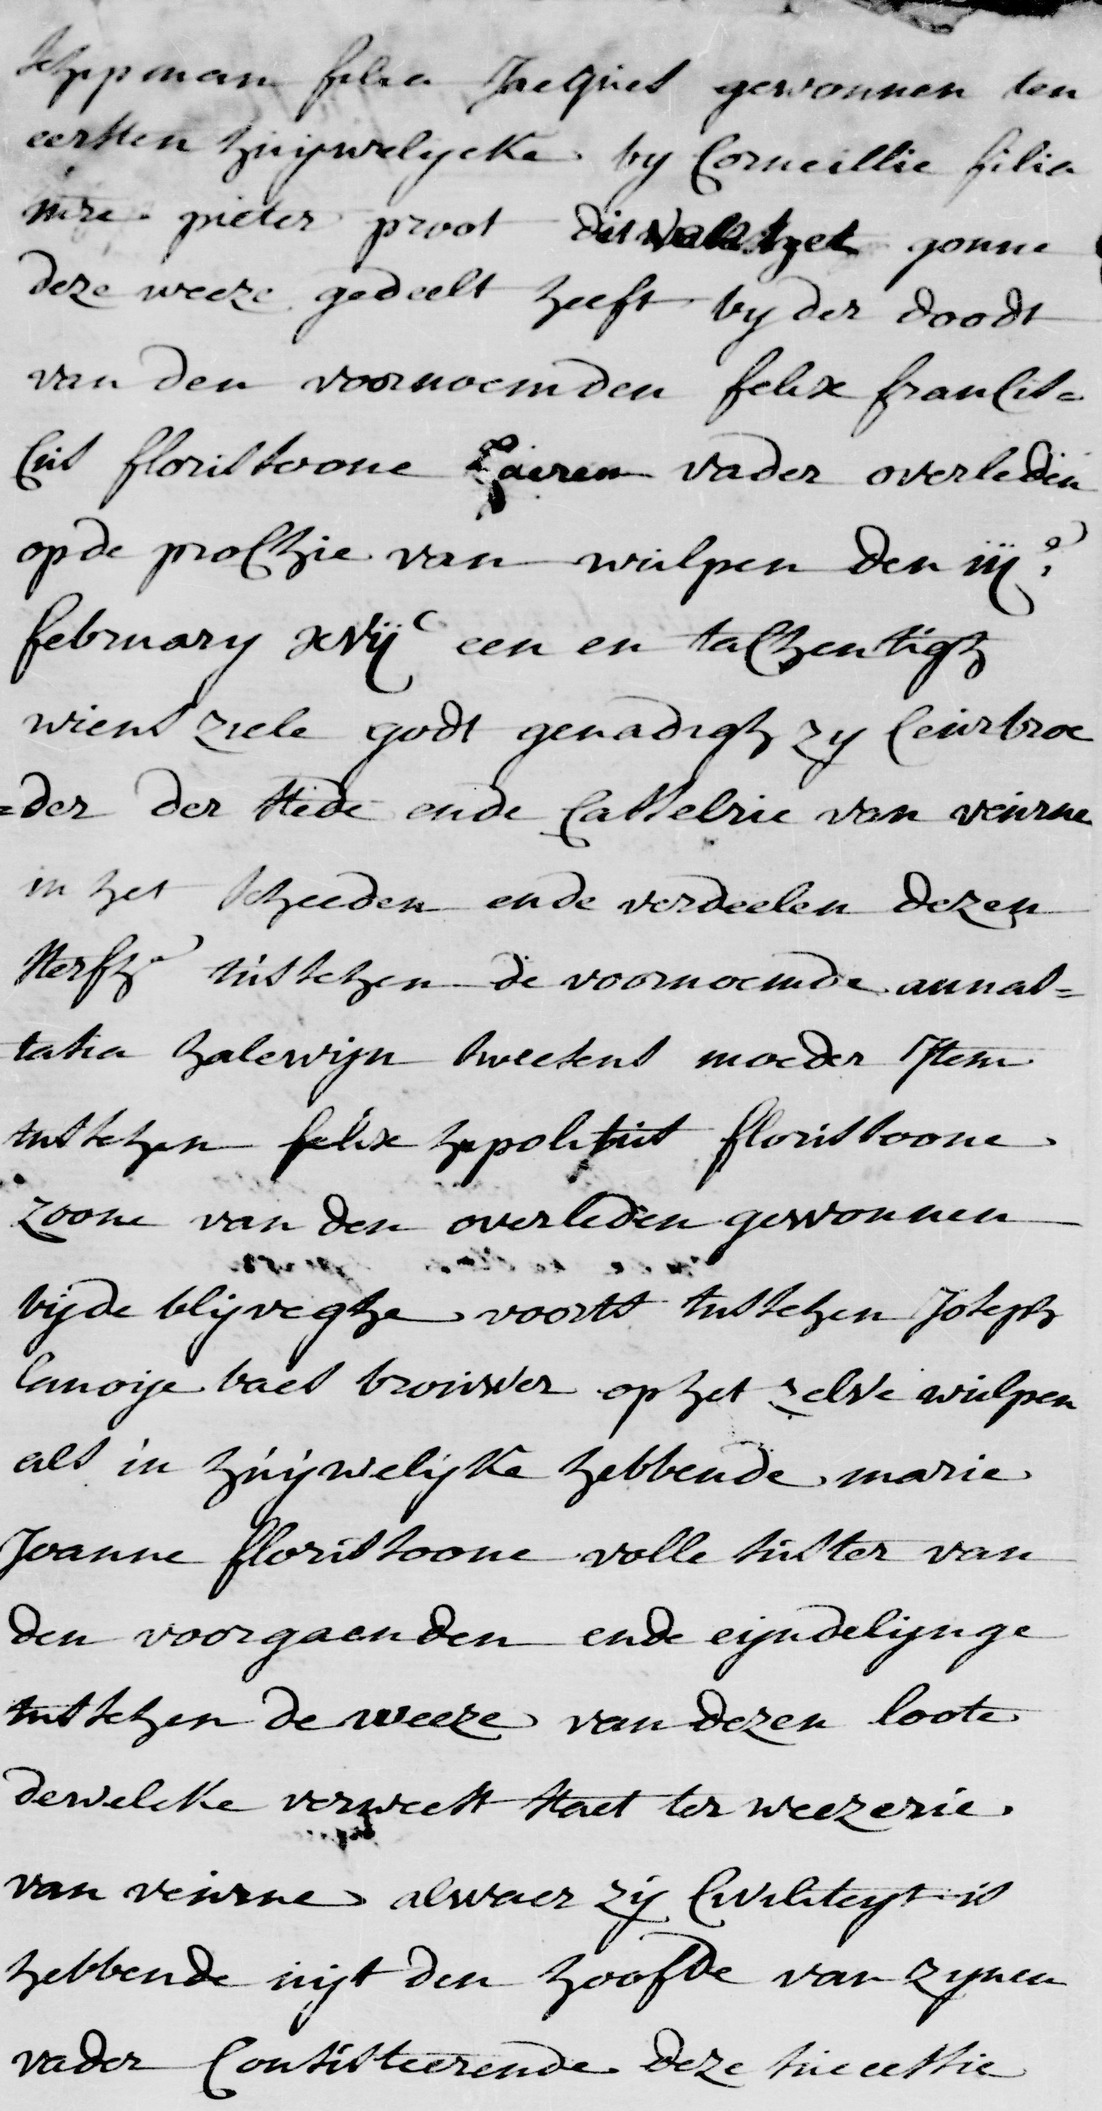 schipman filia Jacques gewonnen ten
eersten huijwelycke by Corneillie filia
mre. pieter proot dit van het gonne
deze weeze gedeelt heeft by der doodt
van den voornoemden felix francis=
cus floris toone haeren vader overleden
op de prochie van wulpen den iije
february xvijc een en tachentigh
wiens ziele godt genadigh zy Ceurbroe
=der der stede ende Casselrie van veurne
in het scheeden ende verdeelen dezen
sterfh. tusschen de voornoemde annas=
tatia halewijn tweesens moeder Item
tusschen felix hypolitus floristoone
zoone van den overleden gewonnen
bijde blijveghe voorts tusschen Joseph
Canoije baes brouwer op het zelve wulpen
als in huijwelijke hebbende marie
Joanne floristoone volle suster van
den voorgaenden ende eijndelijnge
tusschen de weeze van dezen loote
dewelcke verweest staet ter weezerie
van veurne alwaer zij Civiliteyt is
hebbende uijt den hoofde van zynen
vader Consisteerende deze successie